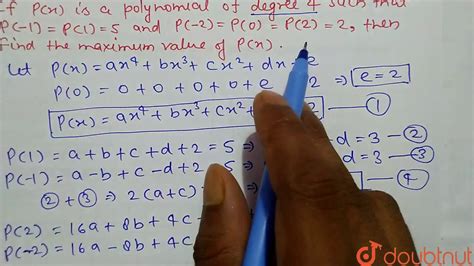 If P(x) is a polynomial of degree 4 such that
P(-1) = P(1) = 5 and P(-2) = P(0) = P(2) = 2, then
Find the maximum value of P(x).
Let P(x) = ax⁴ + bx³ + cx² + dx e
P(0) = 0 + 0 + 0 + 0 + e 2 ⇒ e = 2
P(x) = ax⁴ + bx³ + cx² + 2 ①
P(1) = a + b + c + d + 2 = 5 ⇒ d = 3 ②
P(-1) = a - b + c - d + 2 = 5 ⇒ d = 3 ③
② + ③ ⇒ 2(a + c) = ④
P(2) = 16a + 8b + 4c
P(-2) = 16a - 8b + 4c
doubtnut